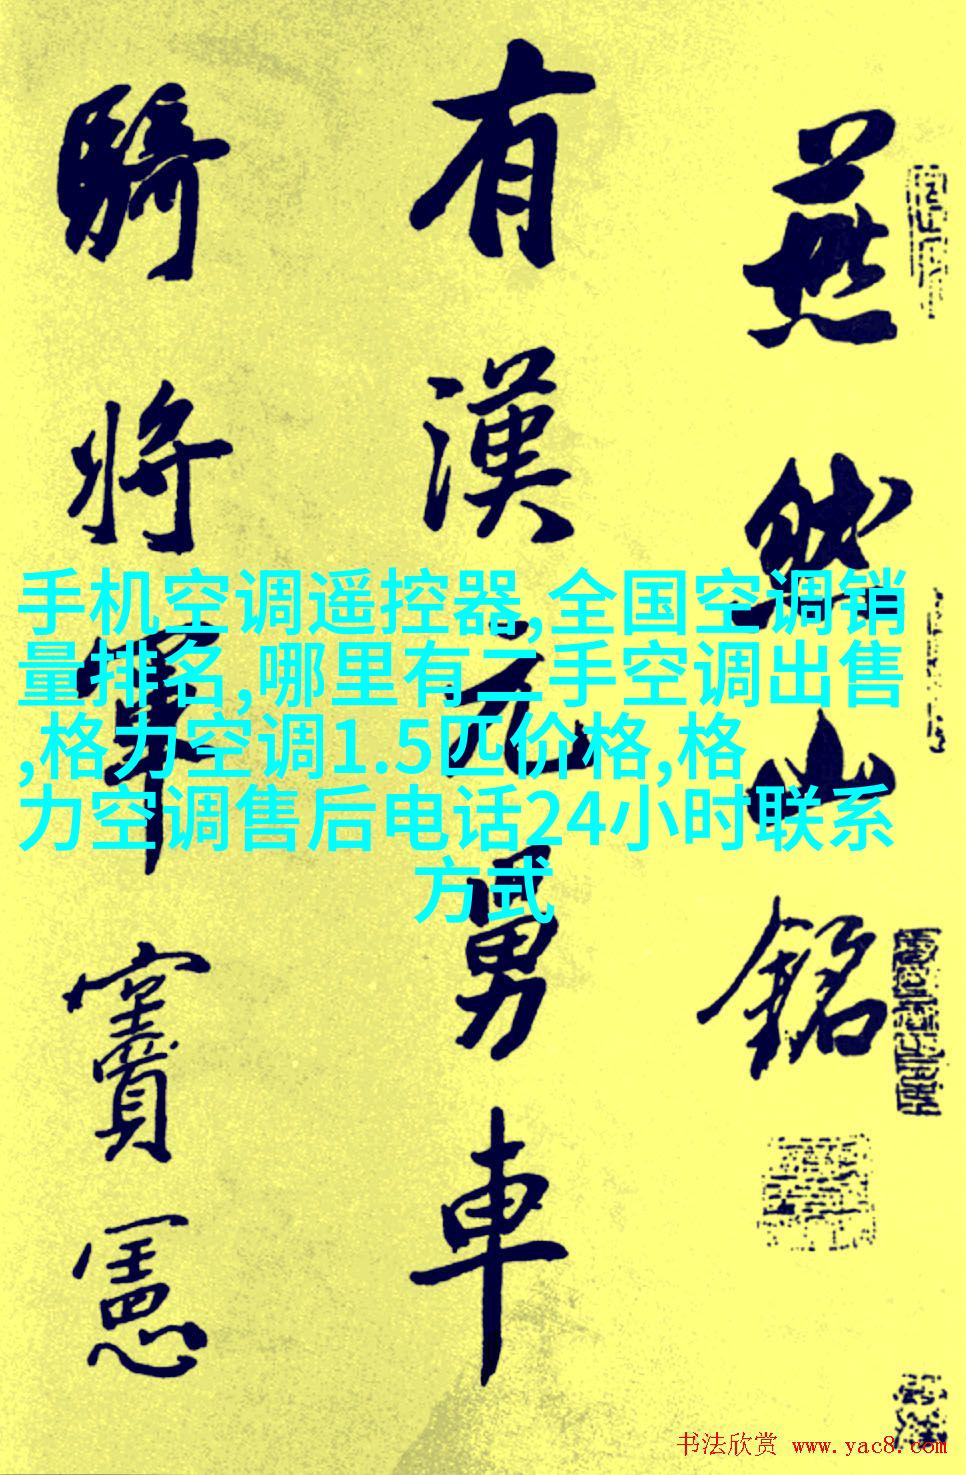 燕然山銘
有漢元舅車
騎將軍竇憲
手机空调遥控器,全国空调销
量排名,哪里有二手空调出售
,格力空调1.5匹价格,格
力空调售后电话24小时联系
方式
书法欣赏 www.yac8.com